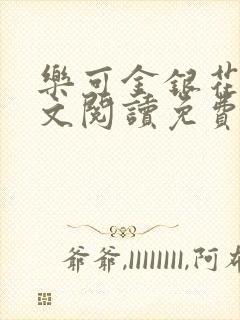 樂可金銀花
文閱讀免費
爺爺,llllllll,阿布